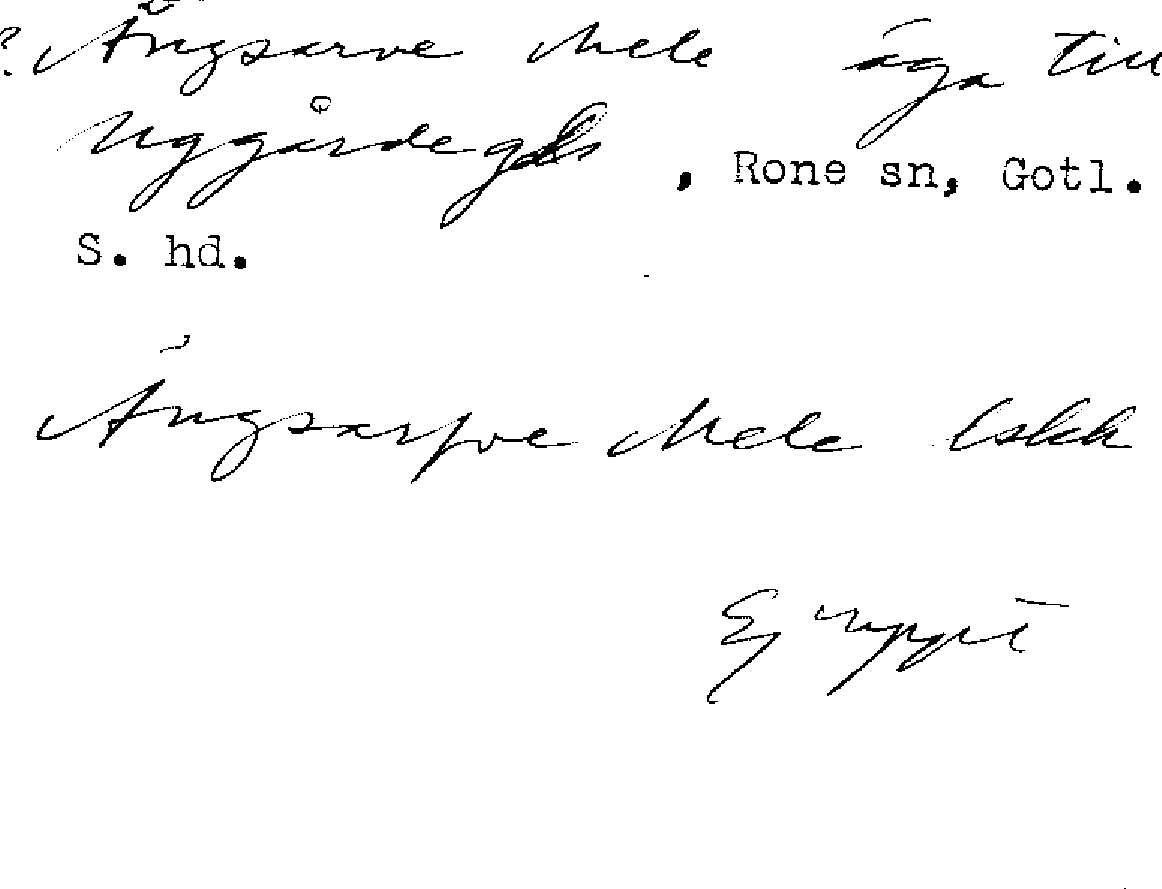 ? Ängsarve Mele äga till
Uggårde gds, Rone sn, Gotl.
S. hd.
Ängsarfve Mele Lskk
Ej uppt